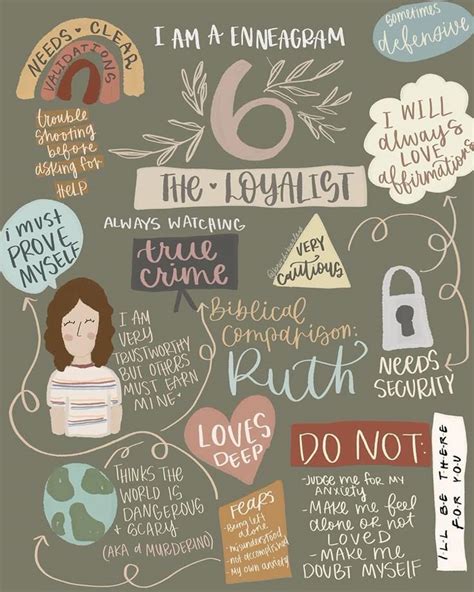 NEEDS CLEAR
VALIDATIONS
I AM A ENNEAGRAM
6
THE LOYALIST
sometimes
defensive
trouble
shooting
before
asking for
HELP
I WILL
always
LOVE
affirmations
i must
PROVE
MYSELF
ALWAYS WATCHING
true
crime
VERY
cautious
I AM
VERY
TRUSTWORTHY
BUT OTHERS
MUST EARN
MINE
Biblical
Comparison:
Ruth
NEEDS
SECURITY
LOVES
DEEP
THINKS THE
WORLD IS
DANGEROUS
+ SCARY
(AKA a MURDERINO)
Fears
-Being left
alone
-misunderstood
-not accomplished
-my own anxiety
DO NOT:
-JUDGE ME FOR MY
ANXIETY
-MAKE ME FEEL
ALONE OR NOT
LOVED
-MAKE ME
DOUBT MYSELF
I'LL BE THERE
FOR YOU